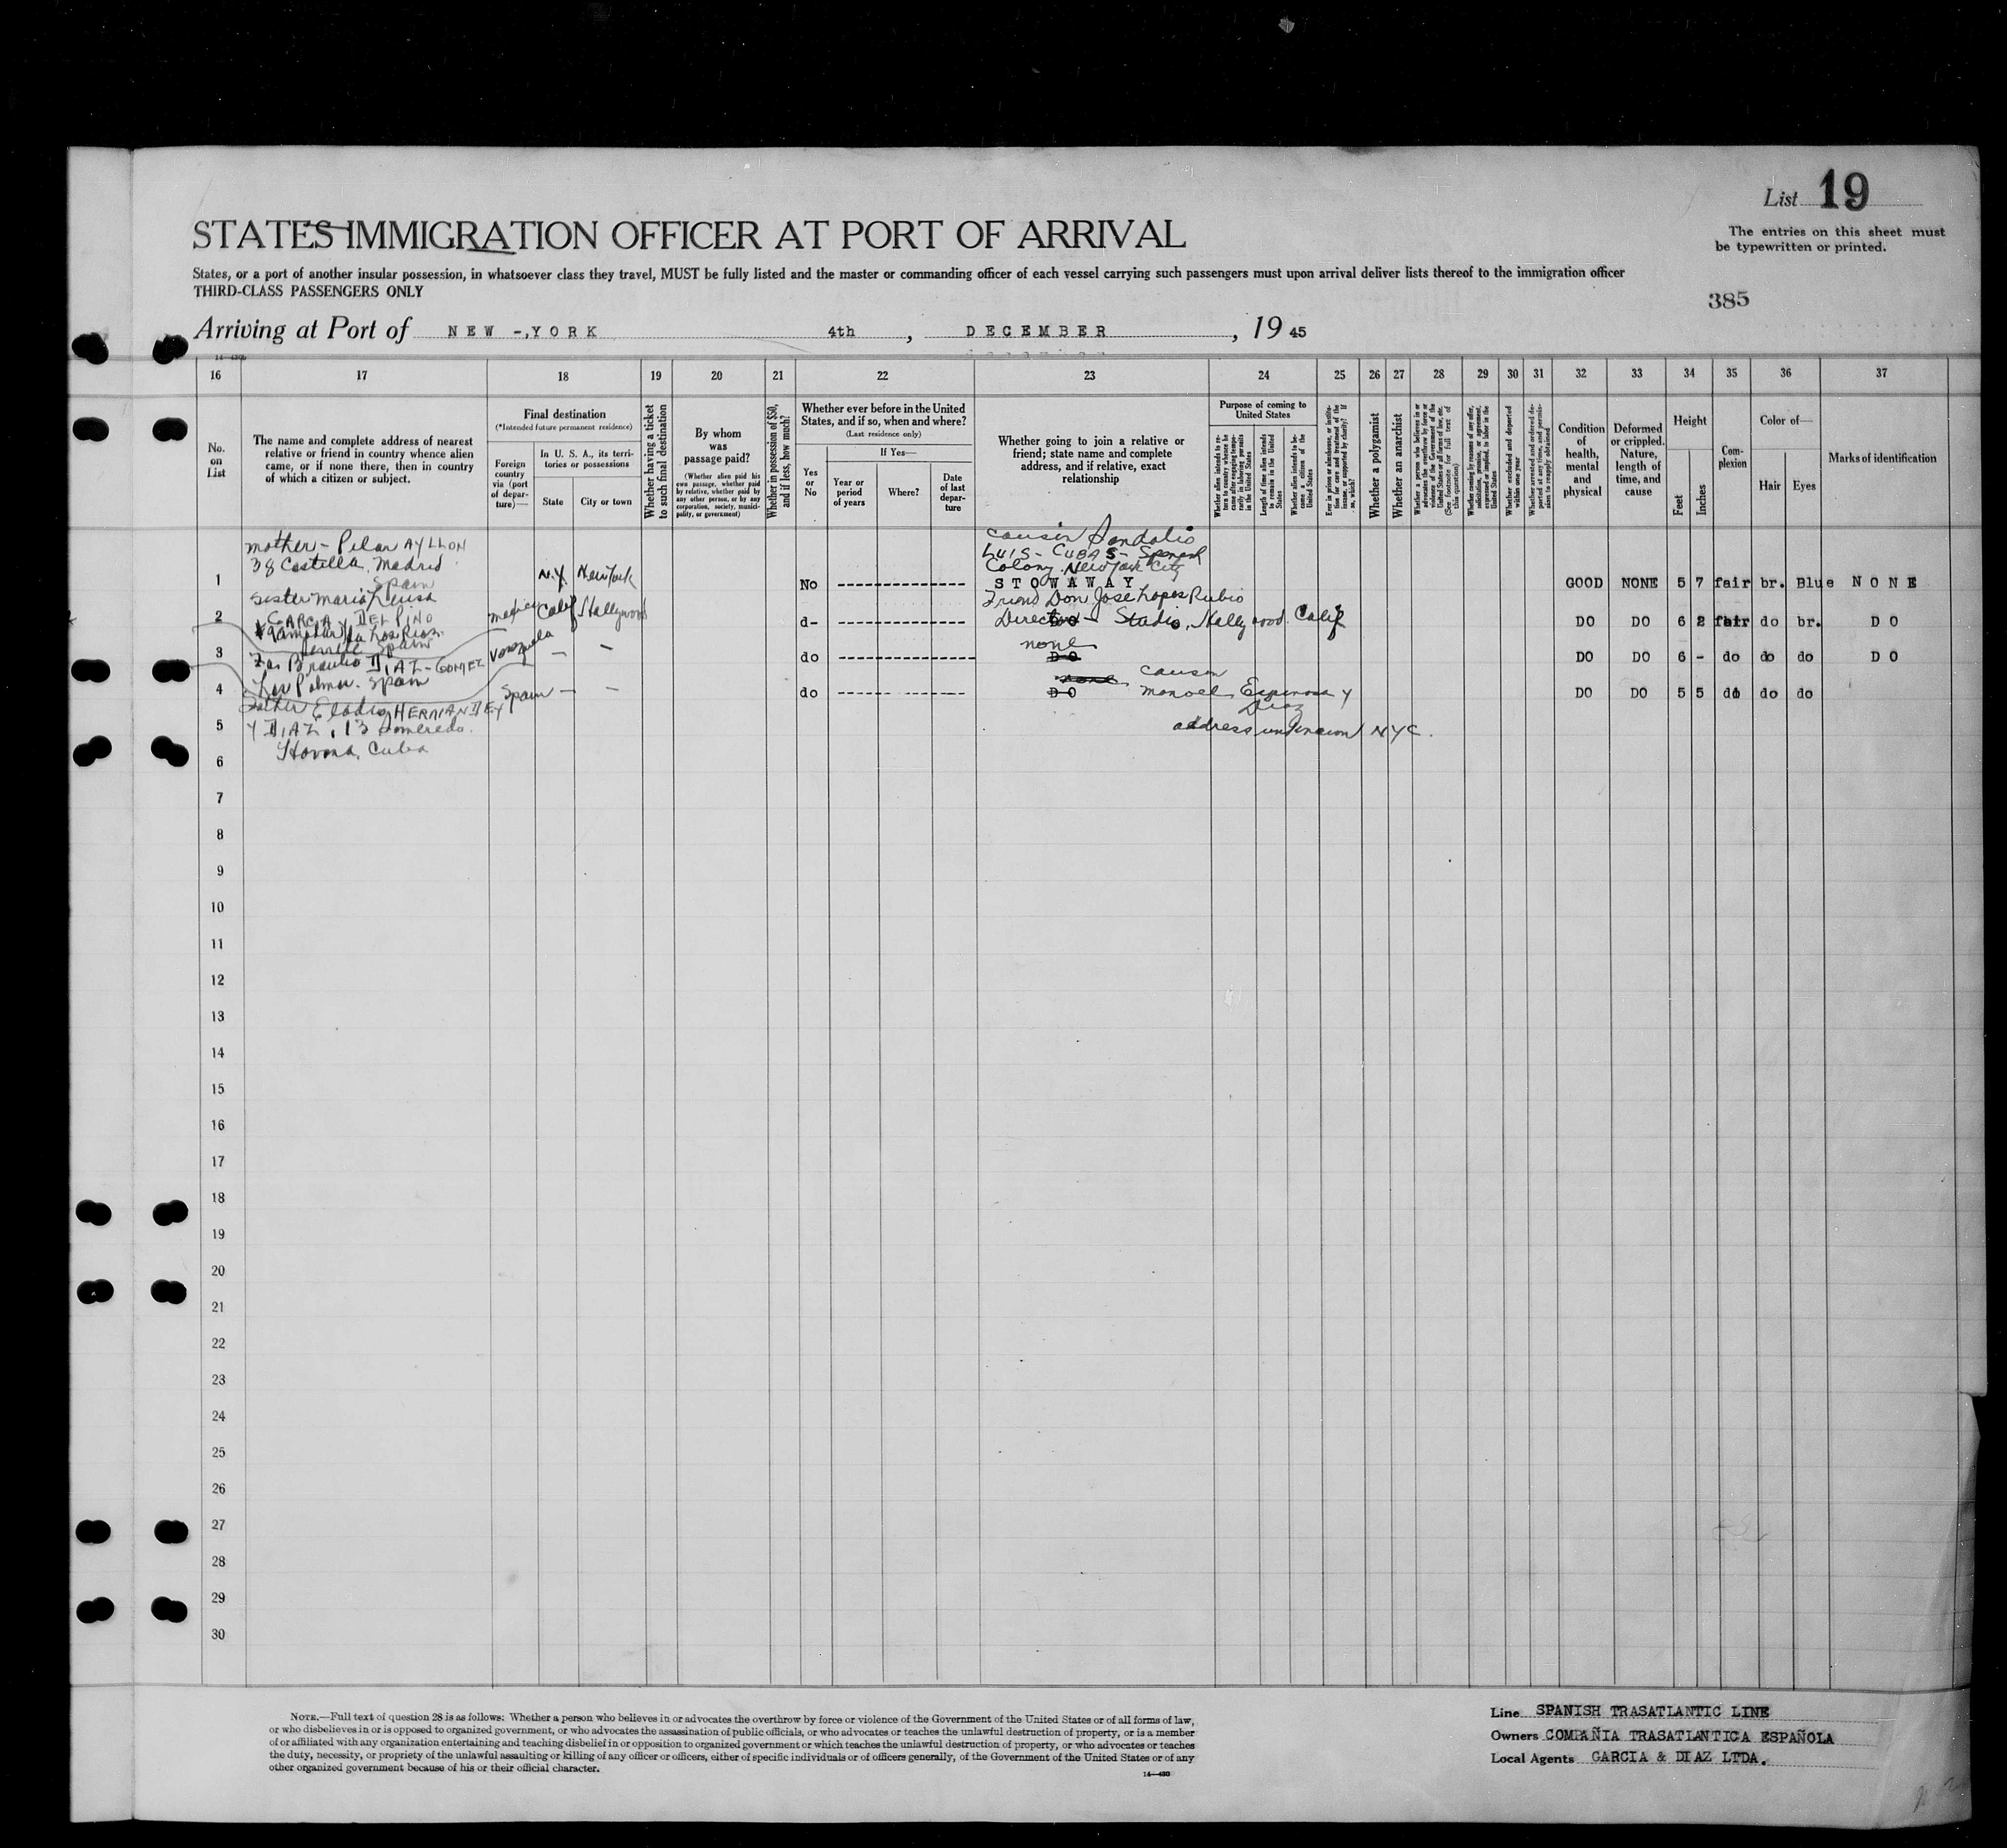 List 19
The entries on this sheet must
be typewritten or printed.
STATES IMMIGRATION OFFICER AT PORT OF ARRIVAL
States, or a port of another insular possession, in whatsoever class they travel, MUST be fully listed and the master or commanding officer of each vessel carrying such passengers must upon arrival deliver lists thereof to the immigration officer
THIRD-CLASS PASSENGERS ONLY
385
Arriving at Port of NEW -,YORK 4th, DECEMBER, 19 45
16 17 18 19 20 21 22 23 24 25 26 27 28 29 30 31 32 33 34 35 36 37
No.
on
List
The name and complete address of nearest
relative or friend in country whence alien
came, or if none there, then in country
of which a citizen or subject.
Final destination
(*Intended future permanent residence)
Foreign
country
via (port
of depar-
ture)—
In U. S. A., its terri-
tories or possessions
State
City or town
Whether having a ticket
to such final destination
By whom
was
passage paid?
(Whether alien paid his
own passage, whether paid
by relative, whether paid by
any other person, or by any
corporation, society, munici-
pality, or government)
Whether in possession of $50,
and if less, how much?
Whether ever before in the United
States, and if so, when and where?
(Last residence only)
Yes
or
No
If Yes—
Year or
period
of years
Where?
Date
of last
depar-
ture
Whether going to join a relative or
friend; state name and complete
address, and if relative, exact
relationship
Purpose of coming to
United States
Whether alien intends to re-
turn to country whence he
came after engaging tempo-
rarily in laboring pursuits
in the United States
Length of time alien intends
to remain in the United
States
Whether alien intends to be-
come a citizen of the
United States
Whether a polygamist
Whether an anarchist
Whether excluded and deported
within one year
Condition
of
health,
mental
and
physical
Deformed
or crippled.
Nature,
length of
time, and
cause
Height
Feet
Inches
Com-
plexion
Color of—
Hair
Eyes
Marks of identification
mother - Pilar AYLLON
38 Castilla, Madrid
Spain
1 N.Y. New York No
cousin Sandalio
LUIS - CUBAS - Spanish
Colony. New York City
STOWAWAY
GOOD NONE 5 7 fair br. Blue NONE
sister Maria Luisa
GARCIA y DEL PINO
Spain
2 Mexico Calif Hollywood d-
Friend Don Jose Lopes Rubio
Director - Studio, Hollywood. Calif
DO DO 6 2 fair do br. DO
Braulio DIAZ - GOMEZ
Las Palmas. Spain
3 Venezuela — — do
none
DO
DO DO 6 - do do do DO
father Eladio HERNANDEZ
Y DIAZ, 13
Havana, Cuba
4 Spain — — do
none
DO
cousin
Manoel Espinosa y
Diaz
address unknown NYC.
DO DO 5 5 do do do
5
6
7
8
9
10
11
12
13
14
15
16
17
18
19
20
21
22
23
24
25
26
27
28
29
30
NOTE.—Full text of question 28 is as follows: Whether a person who believes in or advocates the overthrow by force or violence of the Government of the United States or of all forms of law,
or who disbelieves in or is opposed to organized government, or who advocates the assassination of public officials, or who advocates or teaches the unlawful destruction of property, or is a member
of or affiliated with any organization entertaining and teaching disbelief in or opposition to organized government or which teaches the unlawful destruction of property, or who advocates or teaches
the duty, necessity, or propriety of the unlawful assaulting or killing of any officer or officers, either of specific individuals or of officers generally, of the Government of the United States or of any
other organized government because of his or their official character.
14—430
Line SPANISH TRASATLANTIC LINE
Owners COMPAÑIA TRASATLANTICA ESPAÑOLA
Local Agents GARCIA & DIAZ LTDA.